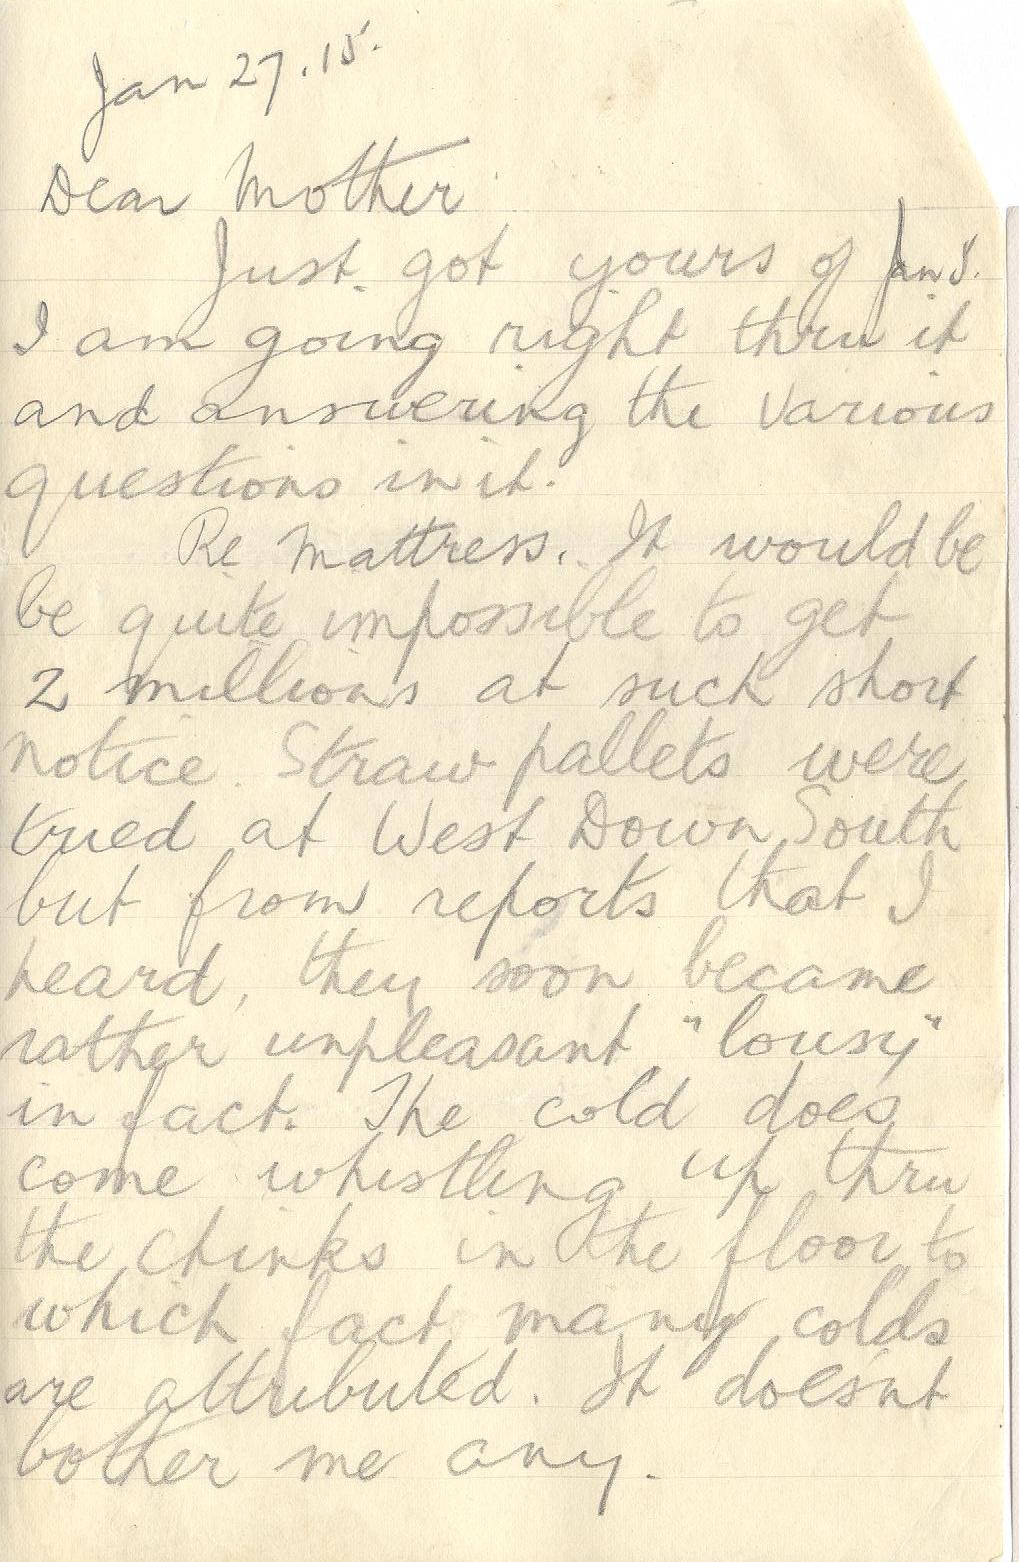 Jan 27.15.
Dear Mother
Just got yours of Jan 8.
I am going right thru it
and answering the various
questions in it.
Re Mattress. It would be
be quite impossible to get
2 millions at such short
notice. Straw pallets were
tried at West Down South
but from reports that I
heard, they soon became
rather unpleasant "lousy"
in fact. The cold does
come whistling up thru
the chinks in the floor to
which fact many colds
are attributed. It doesn't
bother me any.